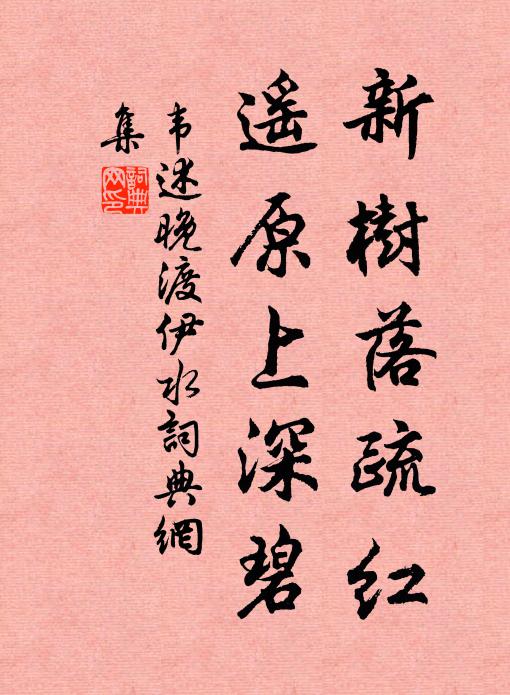 新樹落疏红
遥原上深碧
韦述晚渡伊水詞典網
集
詞典网印